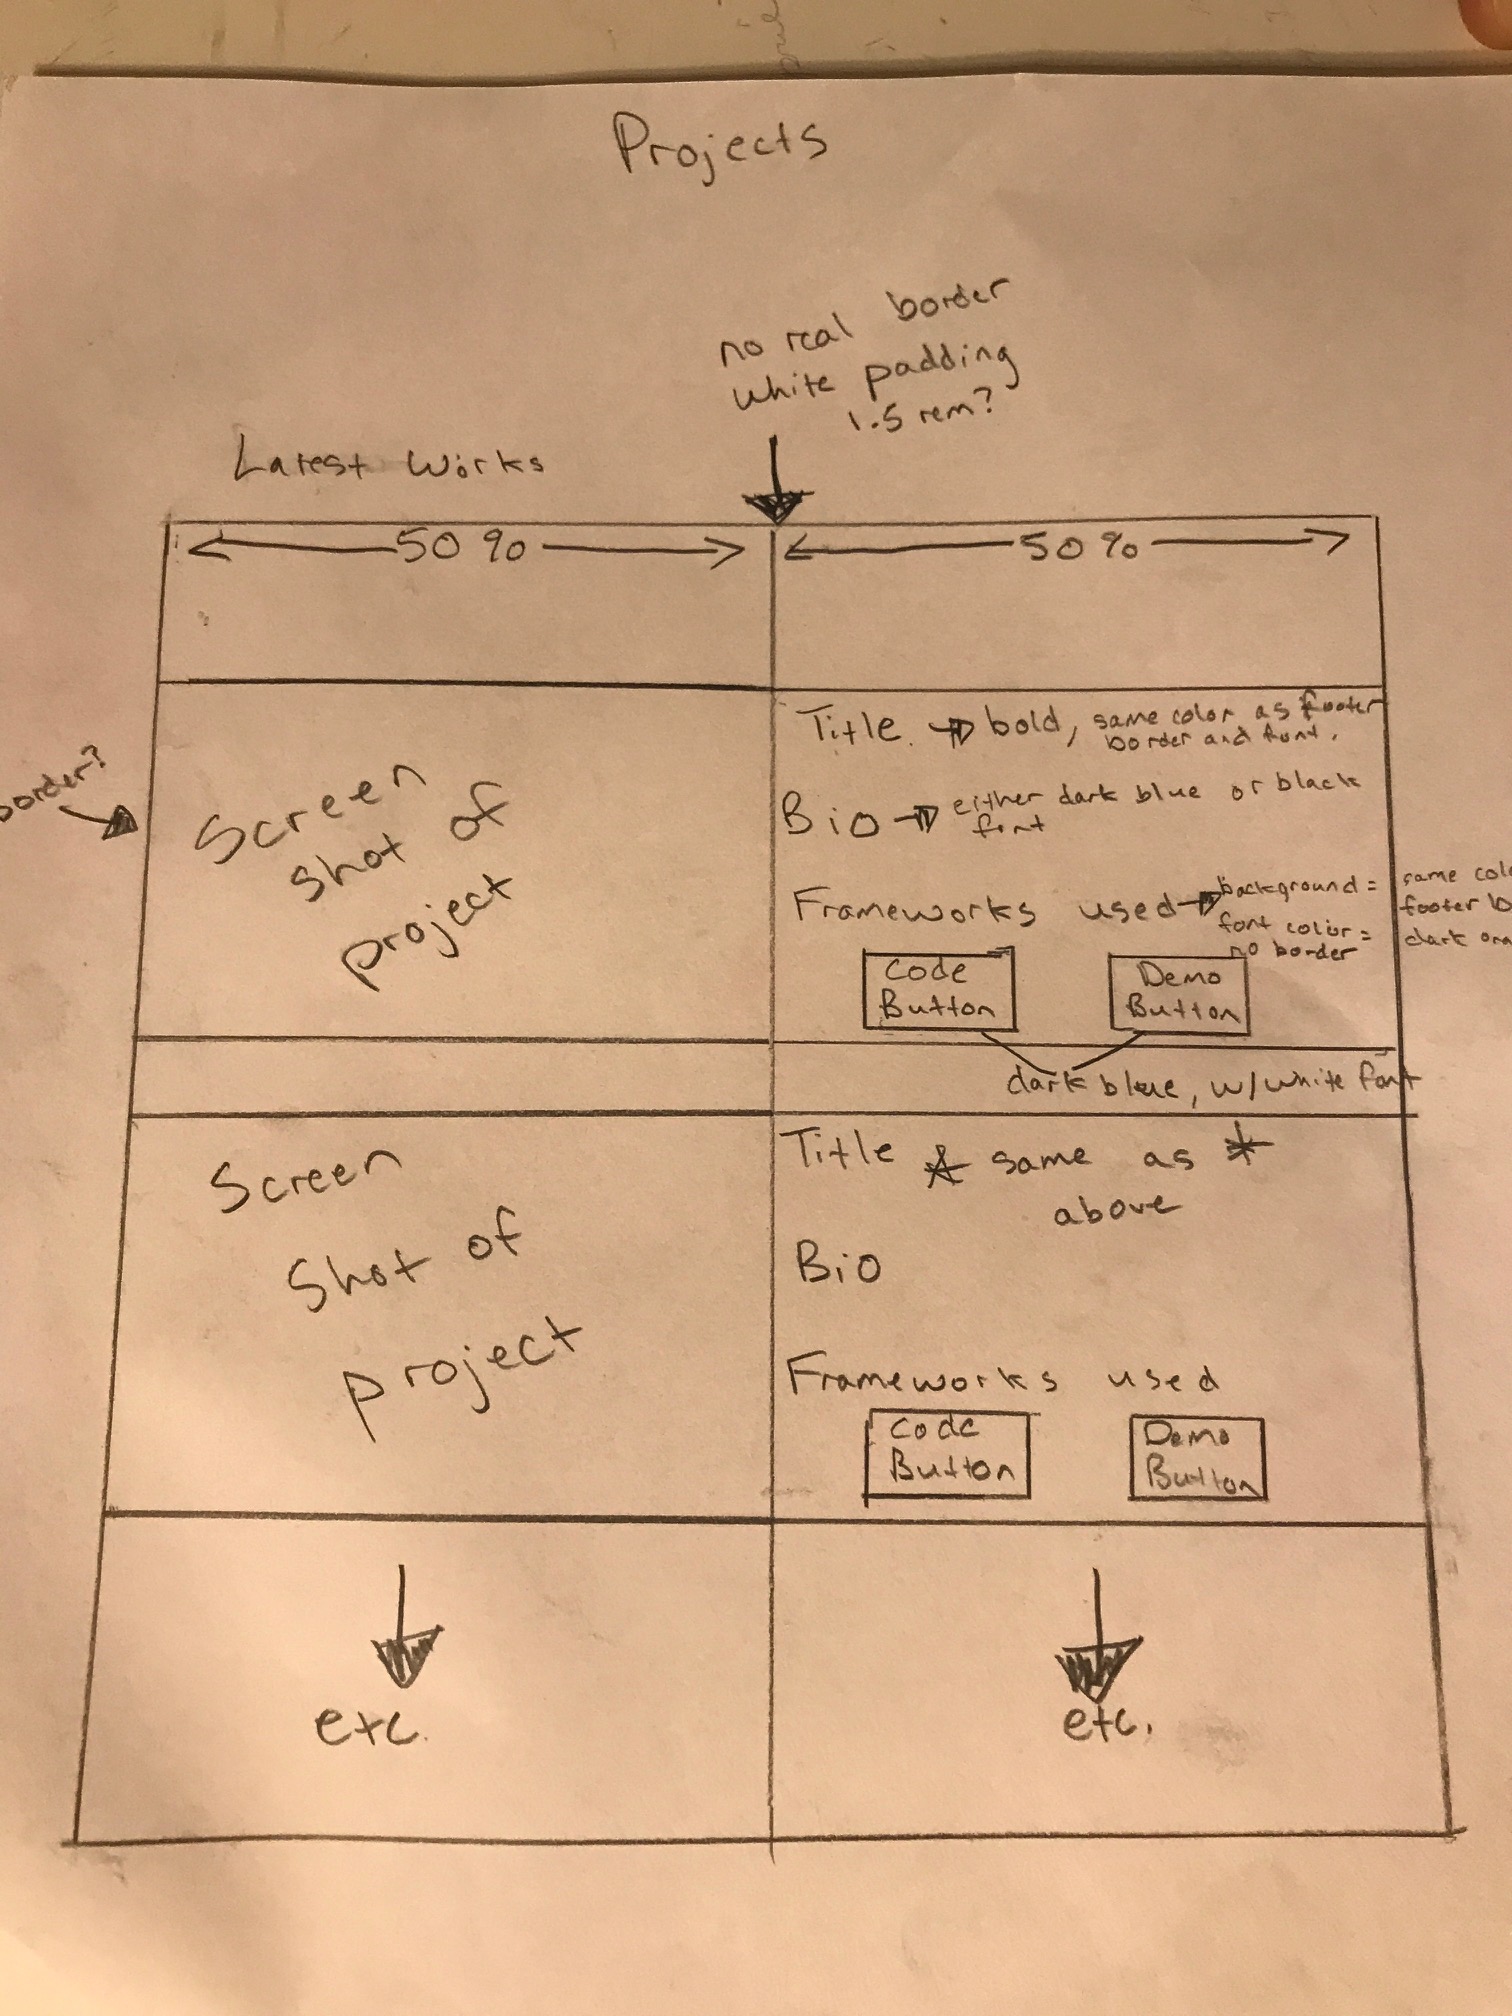 Projects
no real border
white padding
1.5 rem?
Latest Works
50%
50%
Title → bold, same color as footer
border and font.
border?
Screen
shot of
project
Bio → either dark blue or black
font
Frameworks used → background = same col
footer b
font color = dark ora
no border
Code
Button
Demo
Button
dark blue, w/ white font
Screen
Shot of
project
Title * same as *
above
Bio
Frameworks used
Code
Button
Demo
Button
etc.
etc.